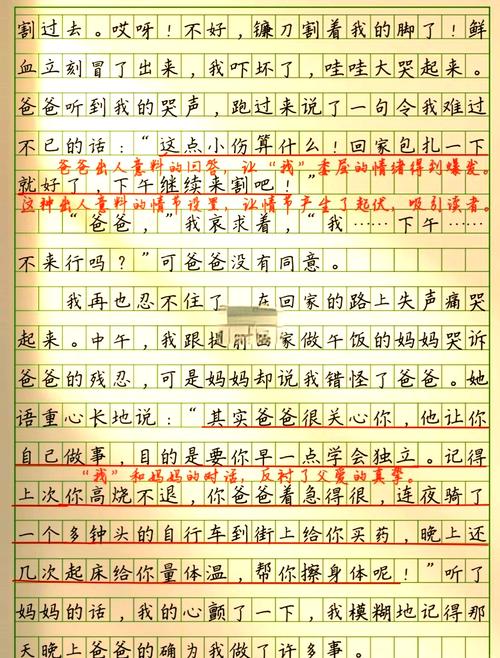 割过去。哎呀！不好，镰刀割着我的脚了！鲜
血立刻冒了出来，我吓坏了，哇哇大哭起来。
爸爸听到我的哭声，跑过来说了一句令我难过
不已的话：“这点小伤算什么！回家包扎一下
爸爸出人意料的回答，让“我”委屈的情绪得到爆发。
就好了，下午继续来割吧！”
这种出人意料的情节设置，让情节产生了起伏，吸引读者。
“爸爸，”我哀求着，“我……下午……
不来行吗？”可爸爸没有同意。
我再也忍不住了，在回家的路上失声痛哭
起来。中午，我跟提前回家做午饭的妈妈哭诉
爸爸的残忍，可是妈妈却说我错怪了爸爸。她
语重心长地说：“其实爸爸很关心你，他让你
自己做事，目的是要你早一点学会独立。记得
“我”和妈妈的对话，反衬了父爱的真挚。
上次你高烧不退，你爸爸着急得很，连夜骑了
一个多钟头的自行车到街上给你买药，晚上还
几次起床给你量体温，帮你擦身体呢！”听了
妈妈的话，我的心颤了一下，我模糊地记得那
天晚上爸爸的确为我做了许多事。